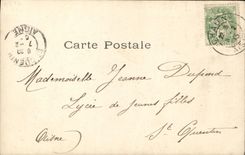 Carte Postale
Mademoiselle Jeanne Dupend
Lycée de jeunes filles
St Quentin
Aisne
AISNE